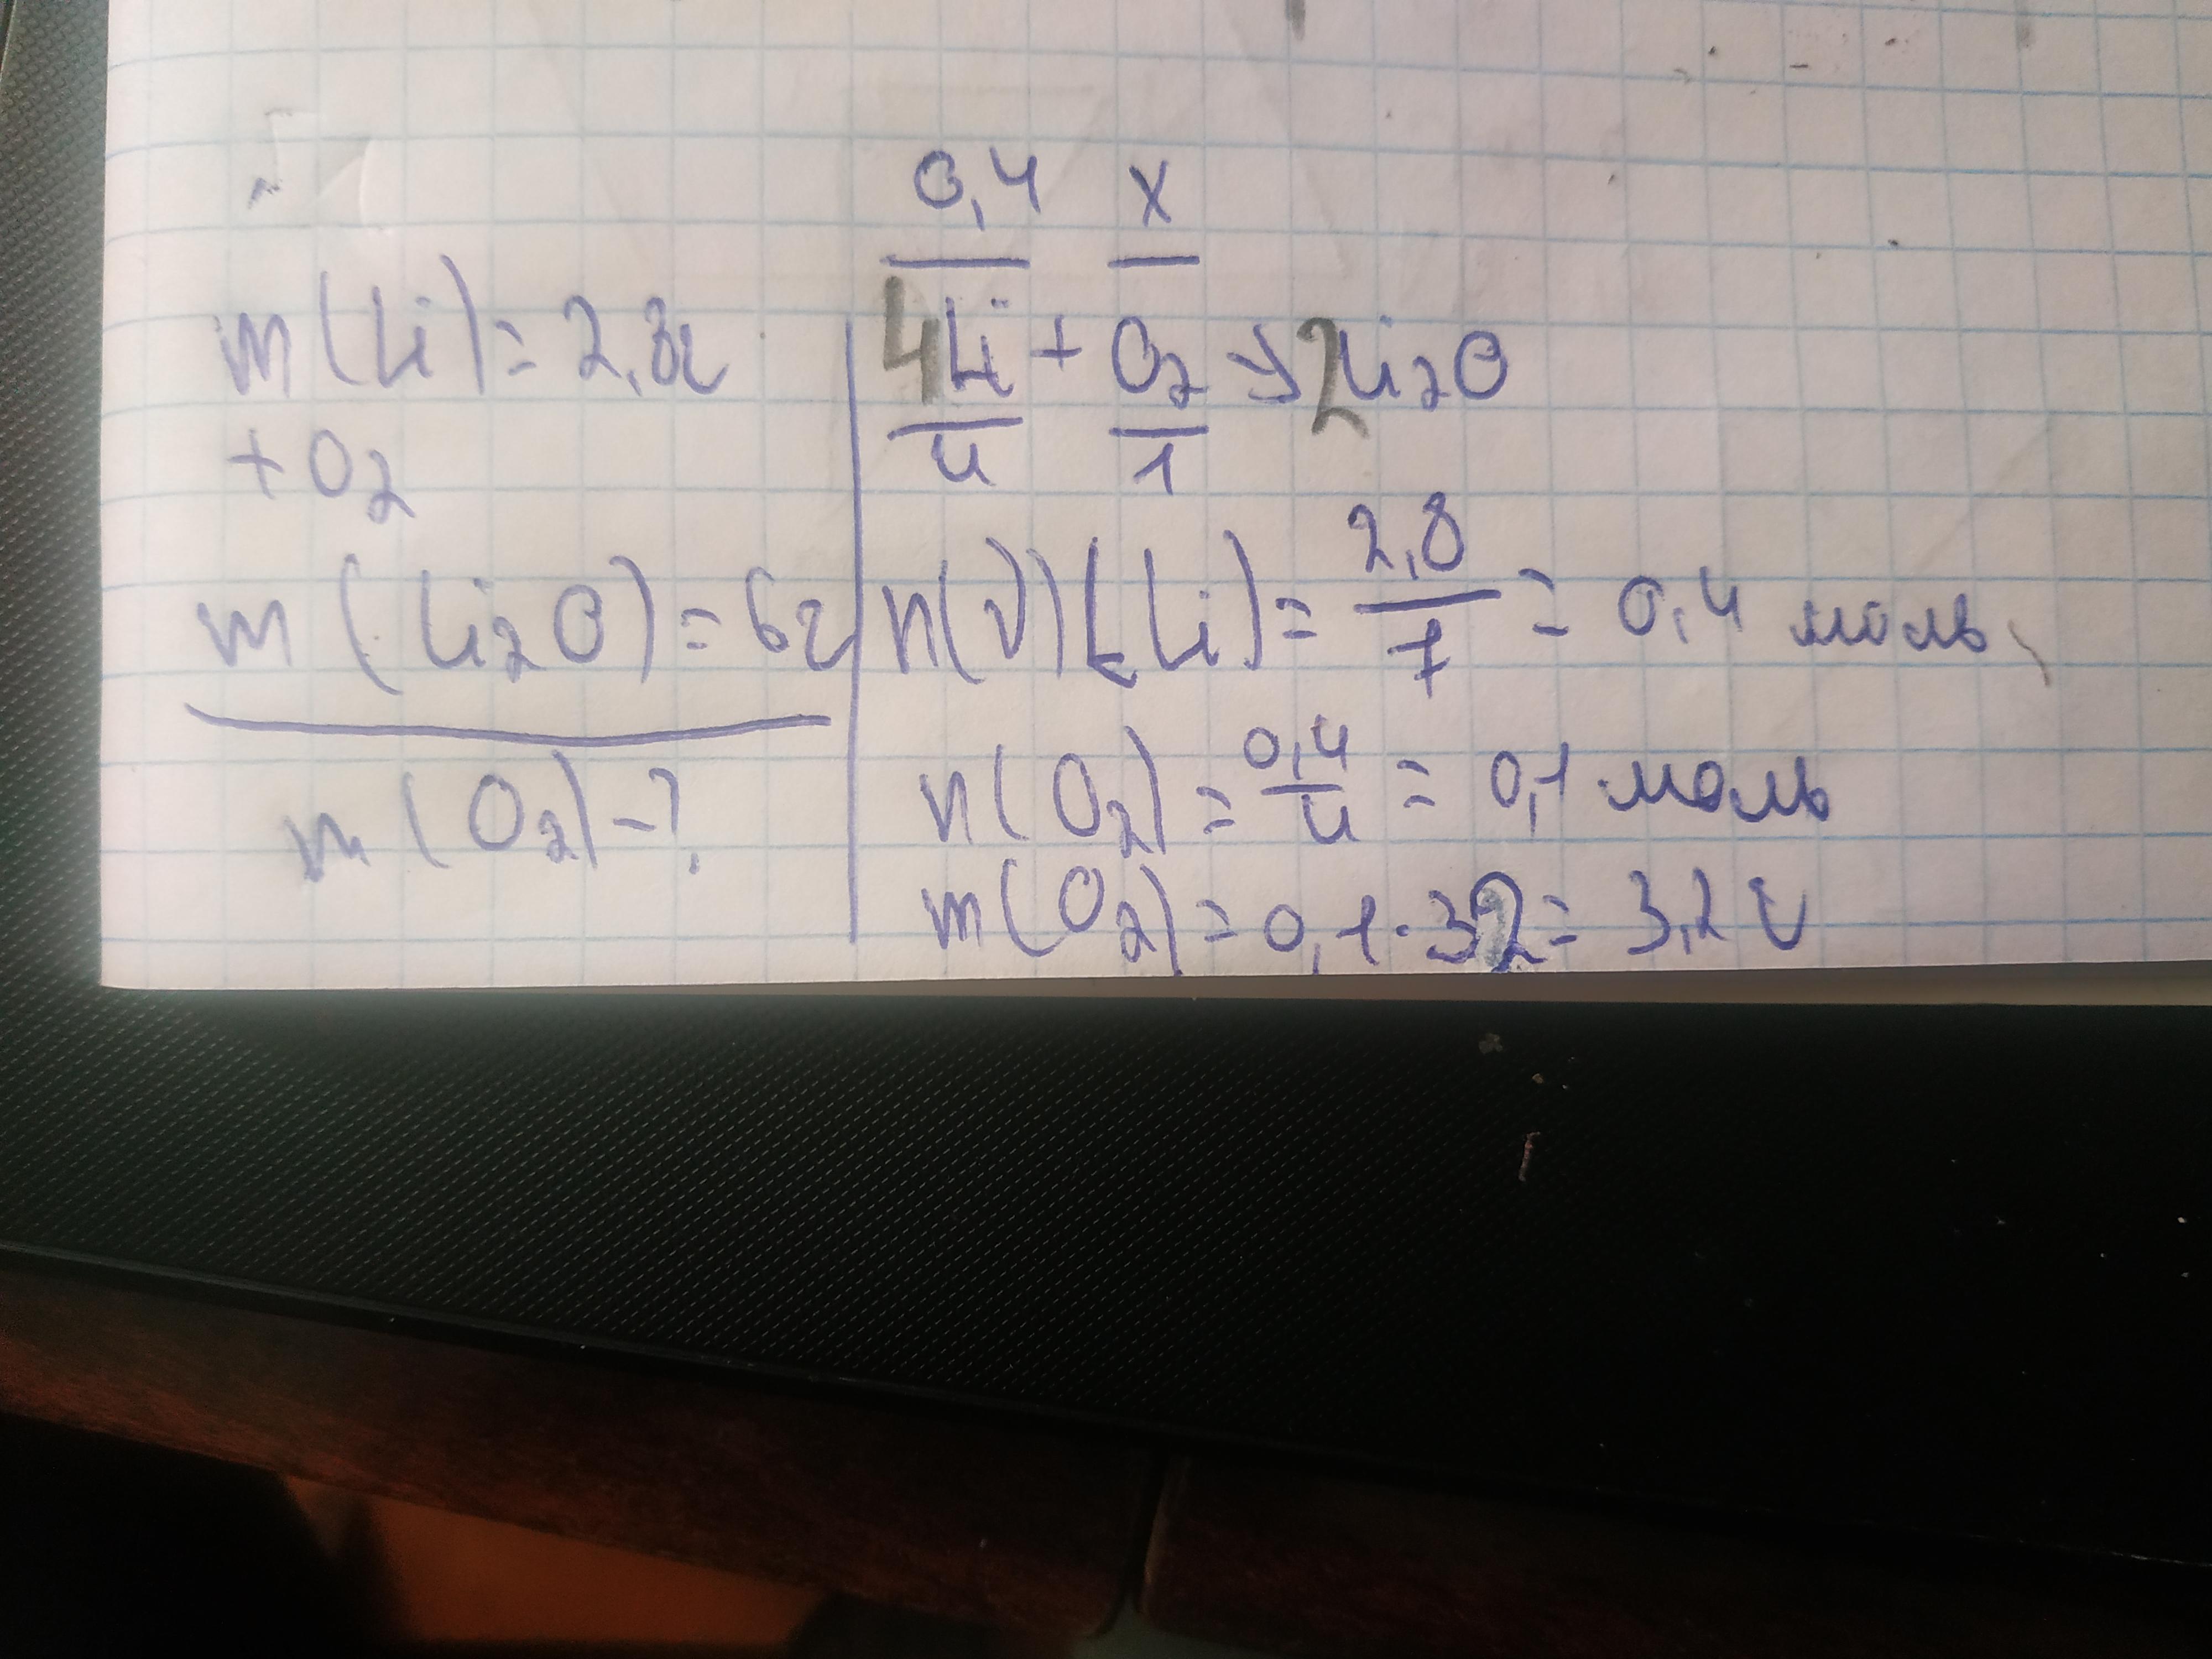 m(Li)=2,8г
+O2
m(Li2O)=6г
m(O2)-?
0,4 x
4Li + O2 → 2Li2O
4 1
n(ν)(Li)= 2,8/7 = 0,4 моль
n(O2)= 0,4/4 = 0,1 моль
m(O2)= 0,1·32= 3,2 г